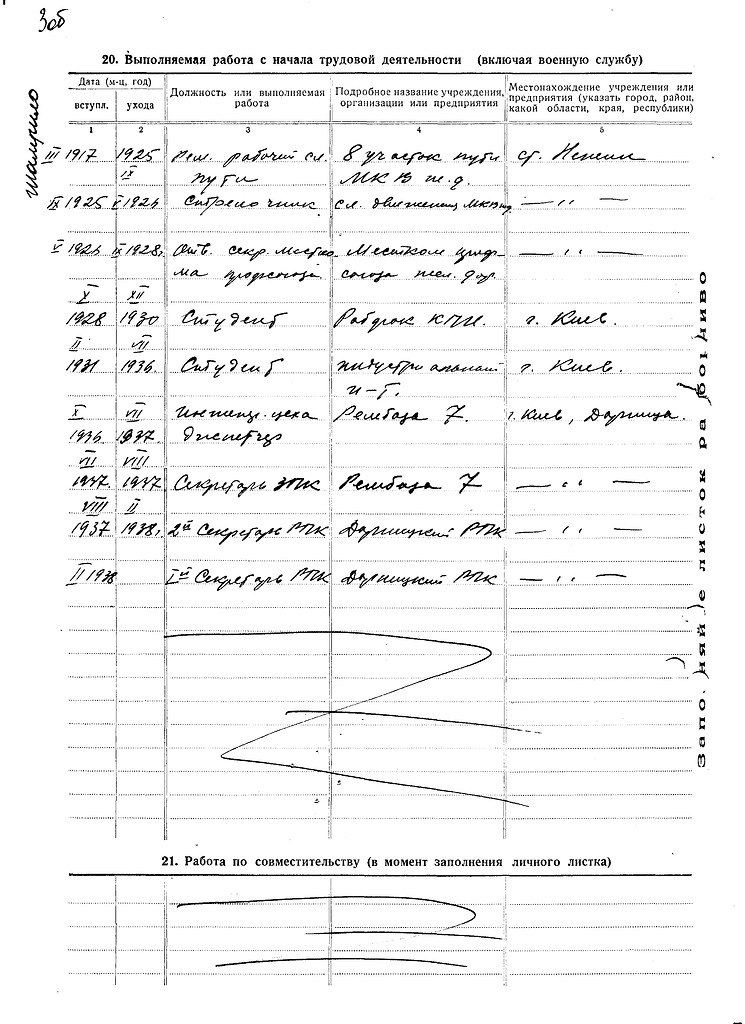 3об
20. Выполняемая работа с начала трудовой деятельности (включая военную службу)
Дата (м-ц, год)
вступл.
ухода
Должность или выполняемая
работа
Подробное название учреждения,
организации или предприятия
Местонахождение учреждения или
предприятия (указать город, район,
какой области, края, республики)
1 2 3 4 5
III 1917 1925 Рем. рабочий сл. 8 участок пути ст.
IX пути МКВ ж.д.
IX 1925 V 1926 Стрелочник сл. движения МКВжд — " —
V 1926 IX 1928 Отв. секр. местко Местком — " —
ма союза жел. дор.
X XII
1928 1930 Студент Рабфак КПИ. г. Киев.
II VII
1931 1936. Студент Индустриальный г. Киев.
и-т.
X VII Инженер. цеха Рембаза 7. г. Киев, Дарница.
1936 1937. диспетчер
VII VIII
1937. 1937 Секретарь ЗПК Рембаза 7 — " —
VIII II
1937 1938, 2й Секретарь РПК Дарницкий РПК — " —
II 1938 Iй Секретарь РПК Дарницкий РПК — " —
21. Работа по совместительству (в момент заполнения личного листка)
листок